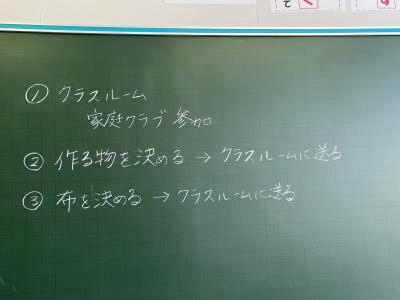 ① クラスルーム
家庭クラブ 参加
② 作る物を決める → クラスルームに送る
③ 布を決める → クラスルームに送る